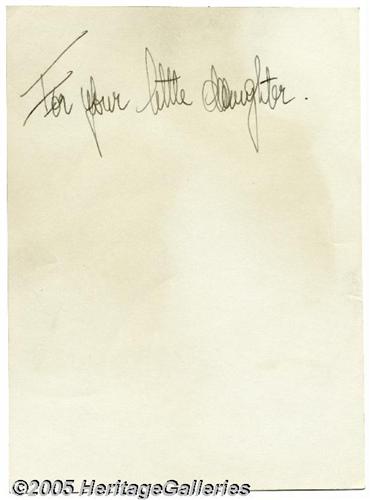 For your little daughter.
©2005 HeritageGalleries